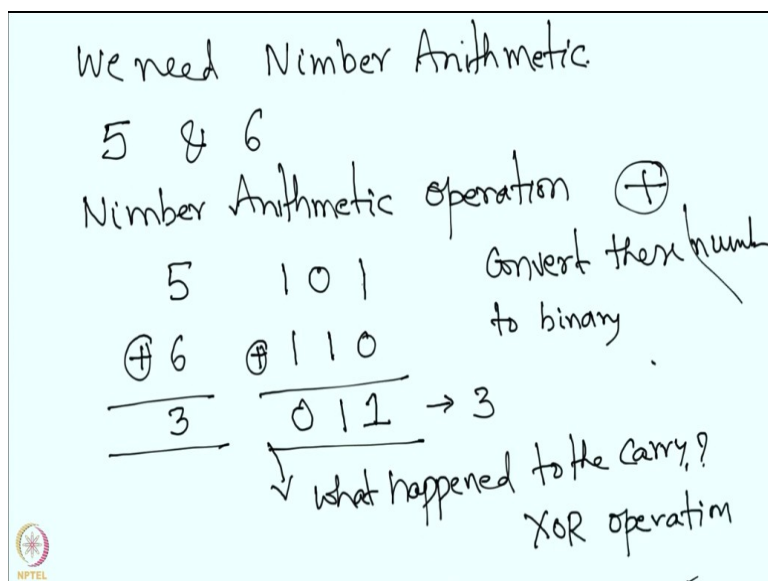 We need Nimber Arithmetic.
5 & 6
Nimber Arithmetic operation ⊕
5 101 Convert these
⊕ 6 ⊕ 110 to binary
3 011 → 3
what happened to the carry?
XOR operation
NPTEL